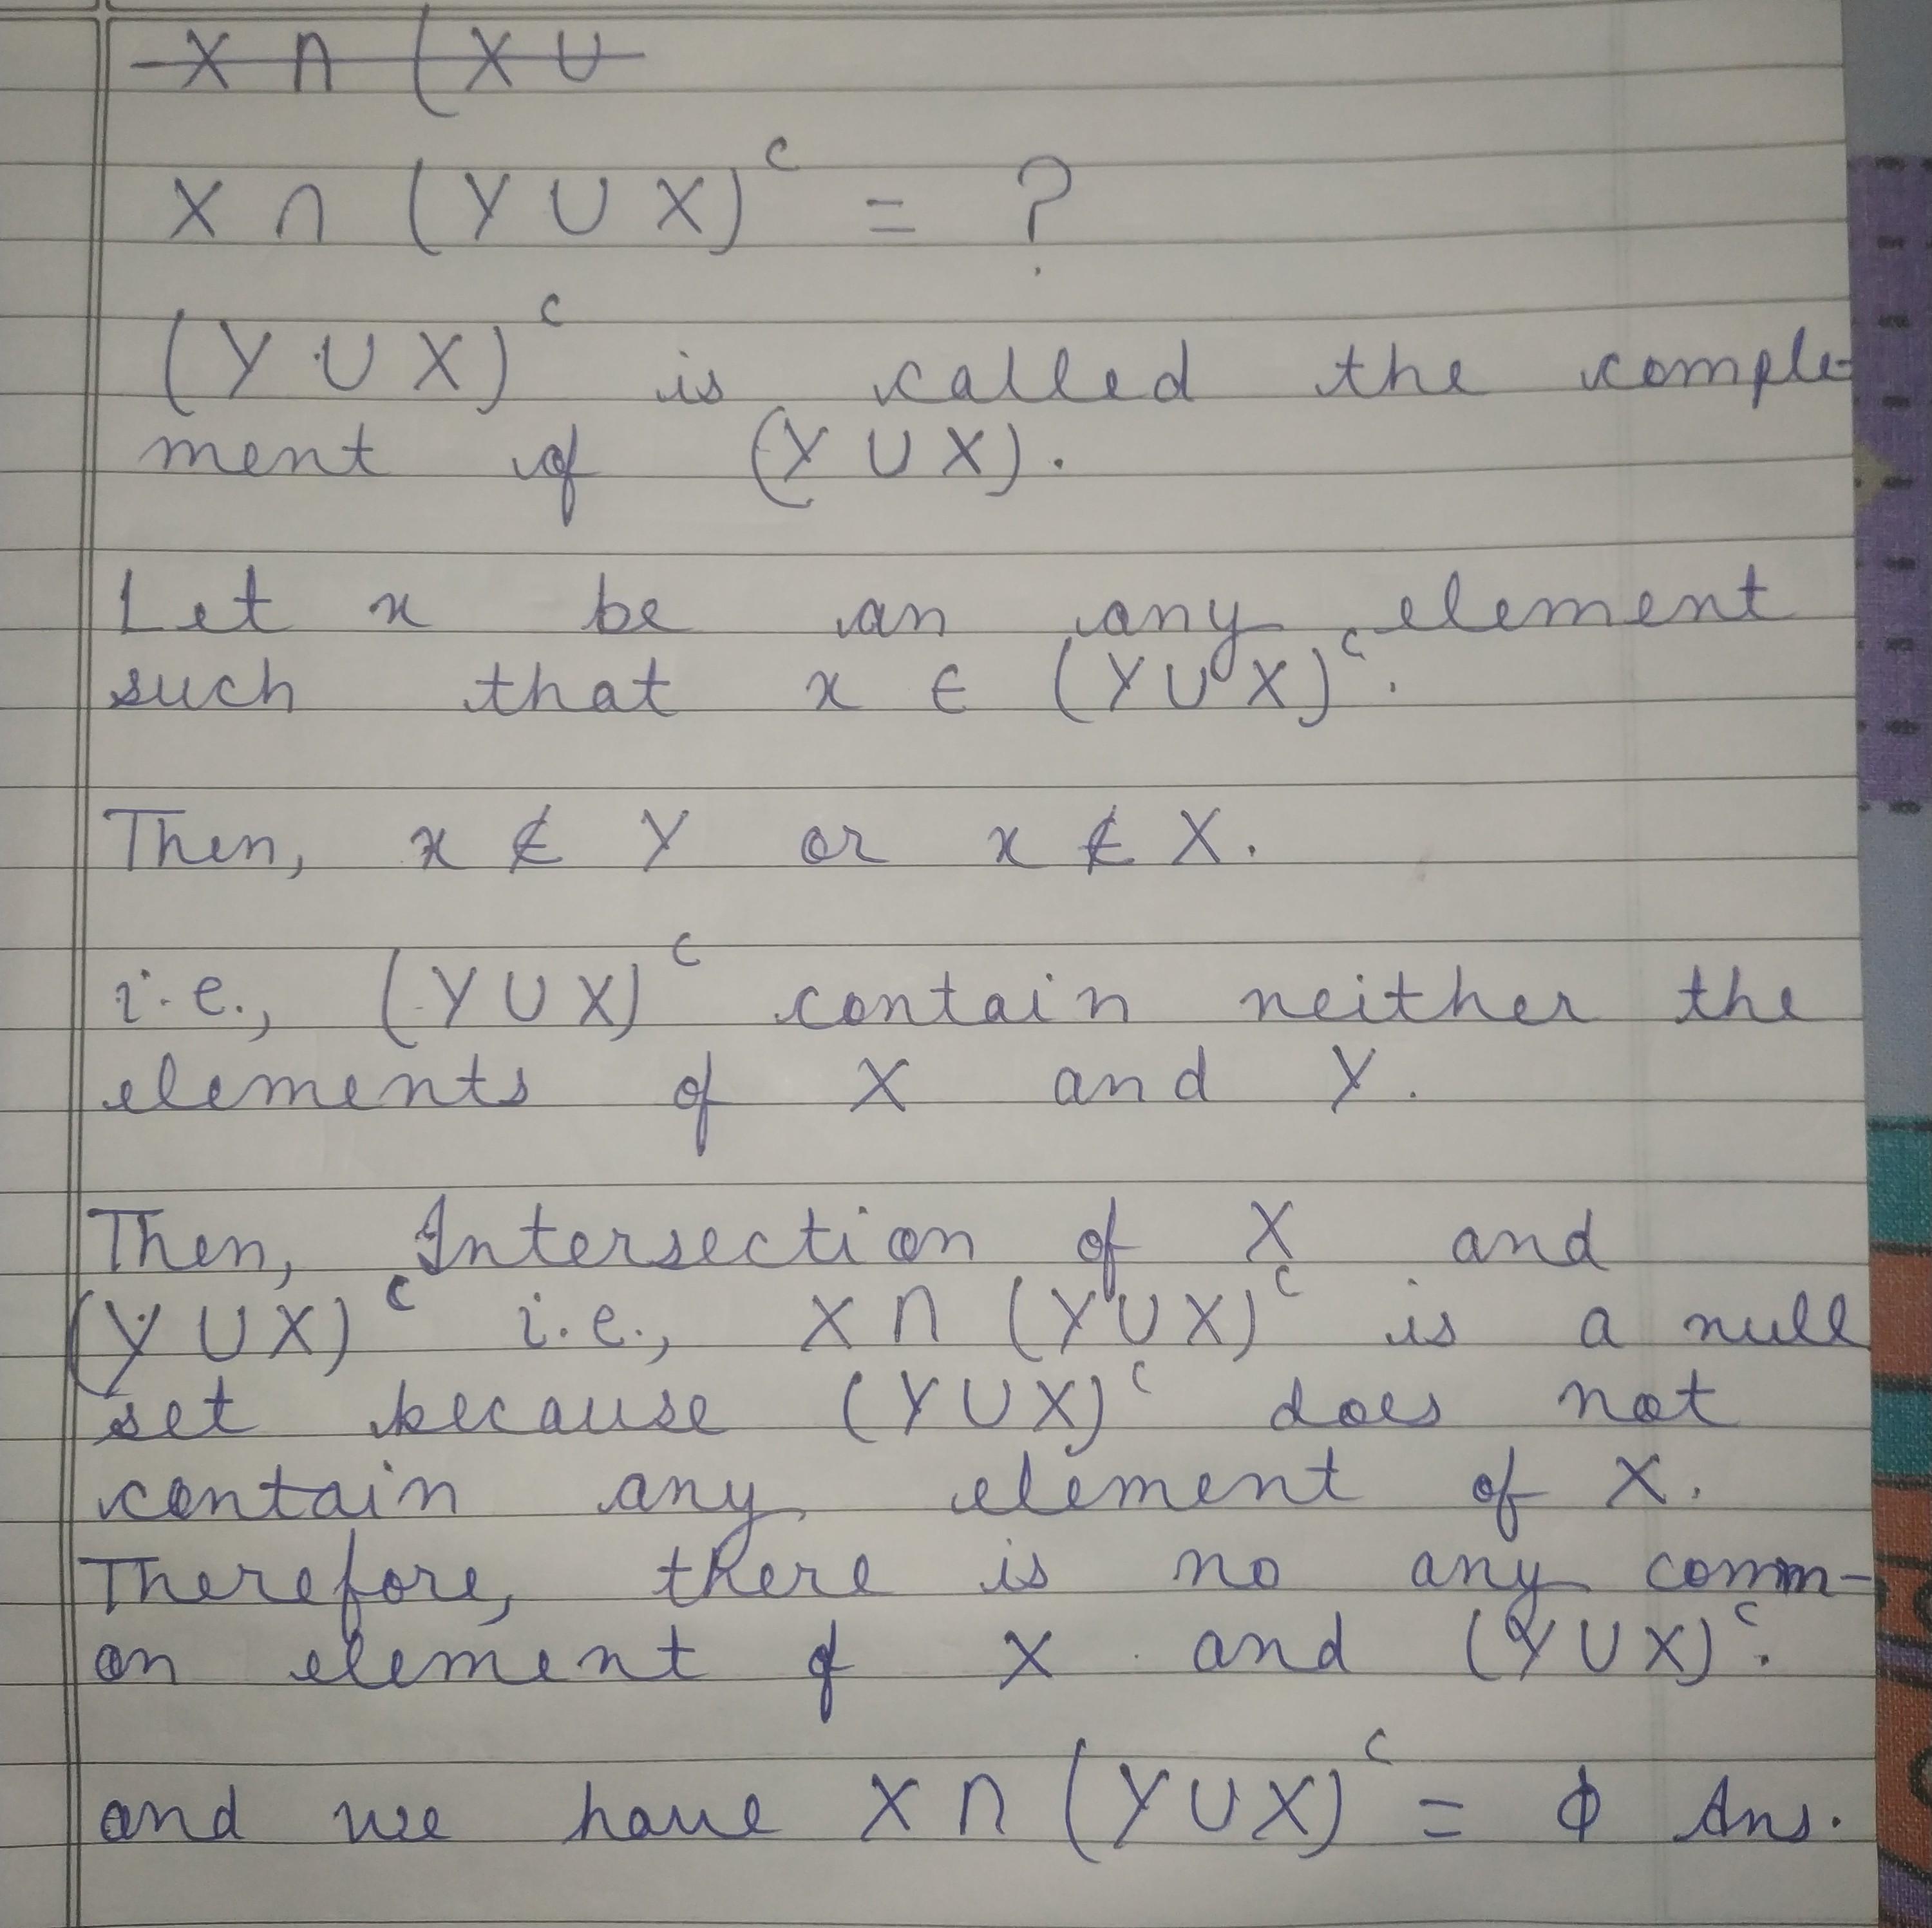 X ∩ (X ∪
X ∩ (Y ∪ X)ᶜ = ?
(Y ∪ X)ᶜ is called the comple-
ment of (Y ∪ X).
Let x be an any element
such that x ∈ (Y ∪ X)ᶜ.
Then, x ∉ Y or x ∉ X.
i.e., (Y ∪ X)ᶜ contain neither the
elements of X and Y.
Then, Intersection of X and
(Y ∪ X)ᶜ i.e., X ∩ (Y ∪ X)ᶜ is a null
set because (Y ∪ X)ᶜ does not
contain any element of X.
Therefore, there is no any comm-
on element of X and (Y ∪ X)ᶜ.
and we have X ∩ (Y ∪ X)ᶜ = ϕ Ans.